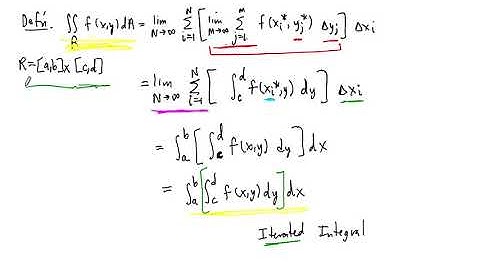 Defn. ∬_R f(x,y) dA = lim_{N→∞} Σ_{i=1}^{N} [ lim_{M→∞} Σ_{j=1}^{M} f(x_i*, y_j*) Δy_j ] Δx_i
R=[a,b]x[c,d]
= lim_{N→∞} Σ_{i=1}^{N} [ ∫_c^d f(x_i*,y) dy ] Δx_i
= ∫_a^b [ ∫_c^d f(x,y) dy ] dx
= ∫_a^b [ ∫_c^d f(x,y) dy ] dx
Iterated Integral